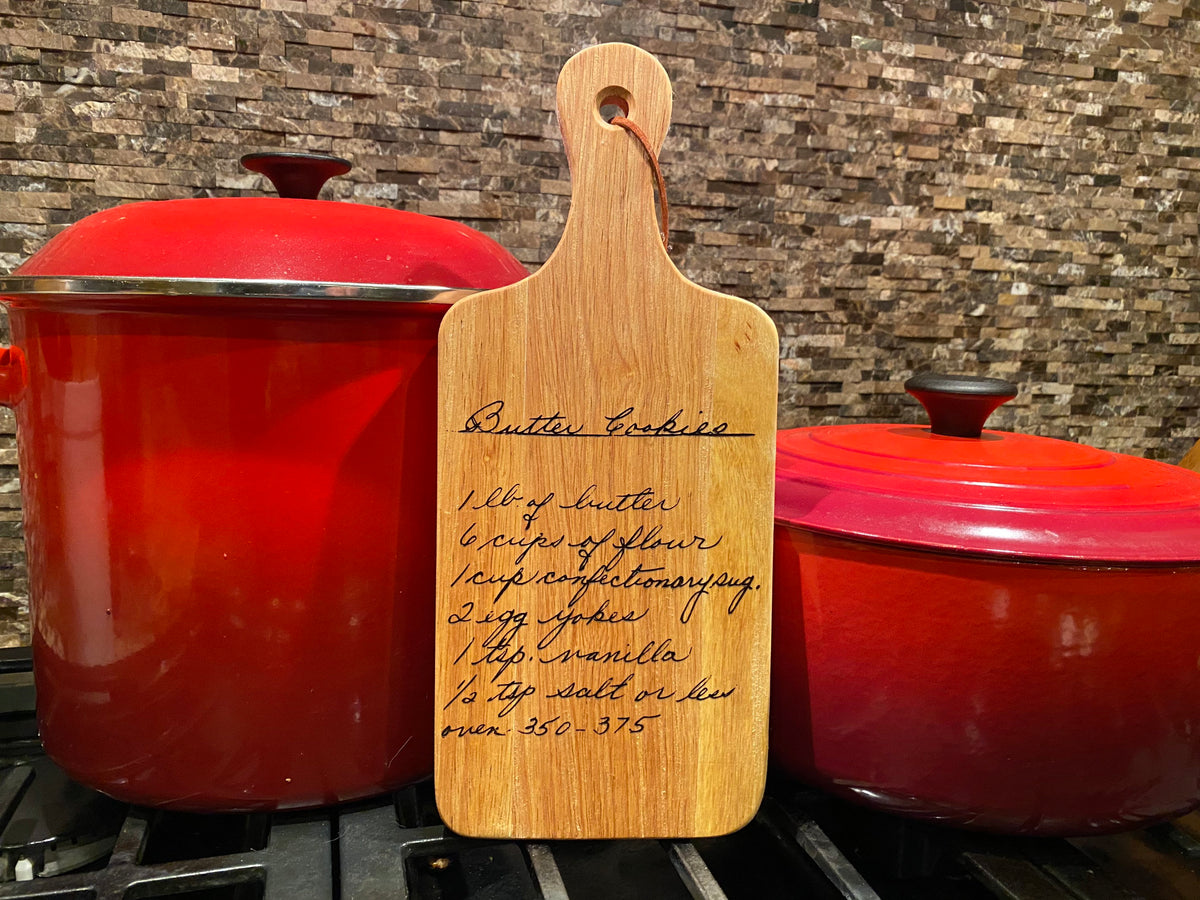 Butter Cookies
1 lb of butter
6 cups of flour
1 cup confectionary sug.
2 egg yokes
1 tsp. vanilla
1/2 tsp salt or less
oven 350-375